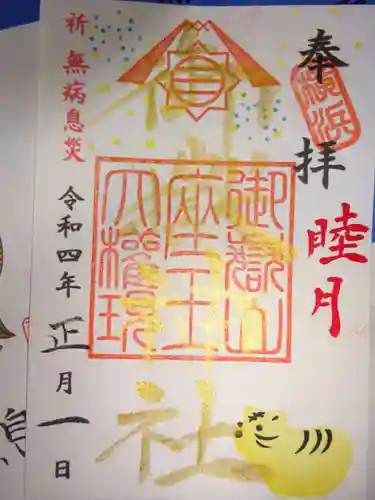 奉拝
横浜
睦月
御嶽山
座王
大権現
御嶽神社
祈 無病息災
令和四年 正月一日